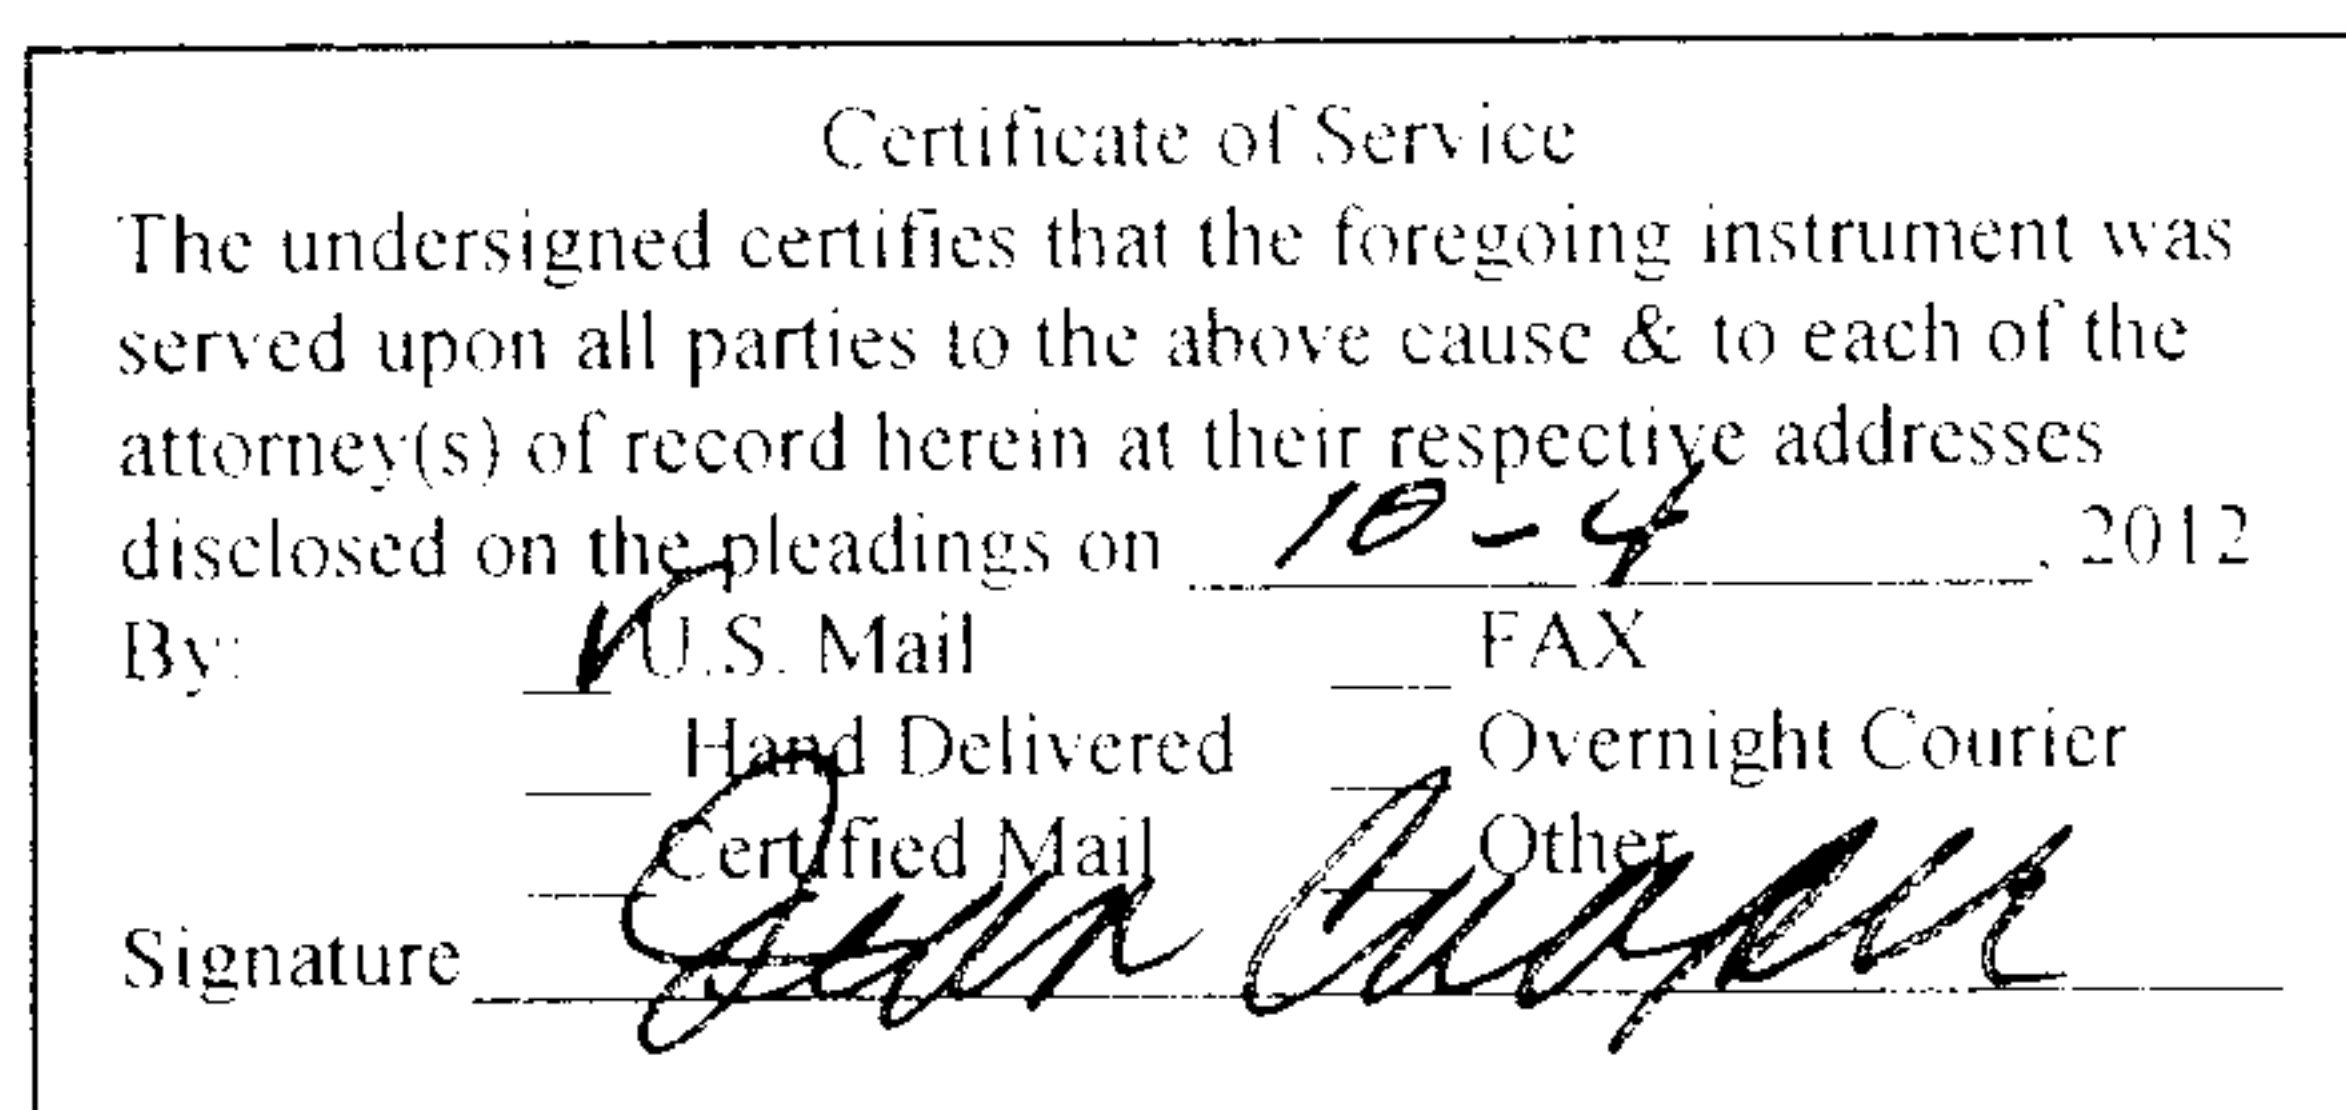 Certificate of Service
The undersigned certifies that the foregoing instrument was
served upon all parties to the above cause & to each of the
attorney(s) of record herein at their respective addresses
disclosed on the pleadings on 10-4, 2012
By: ✓ U.S. Mail ___ FAX
___ Hand Delivered ___ Overnight Courier
___ Certified Mail ___ Other
Signature